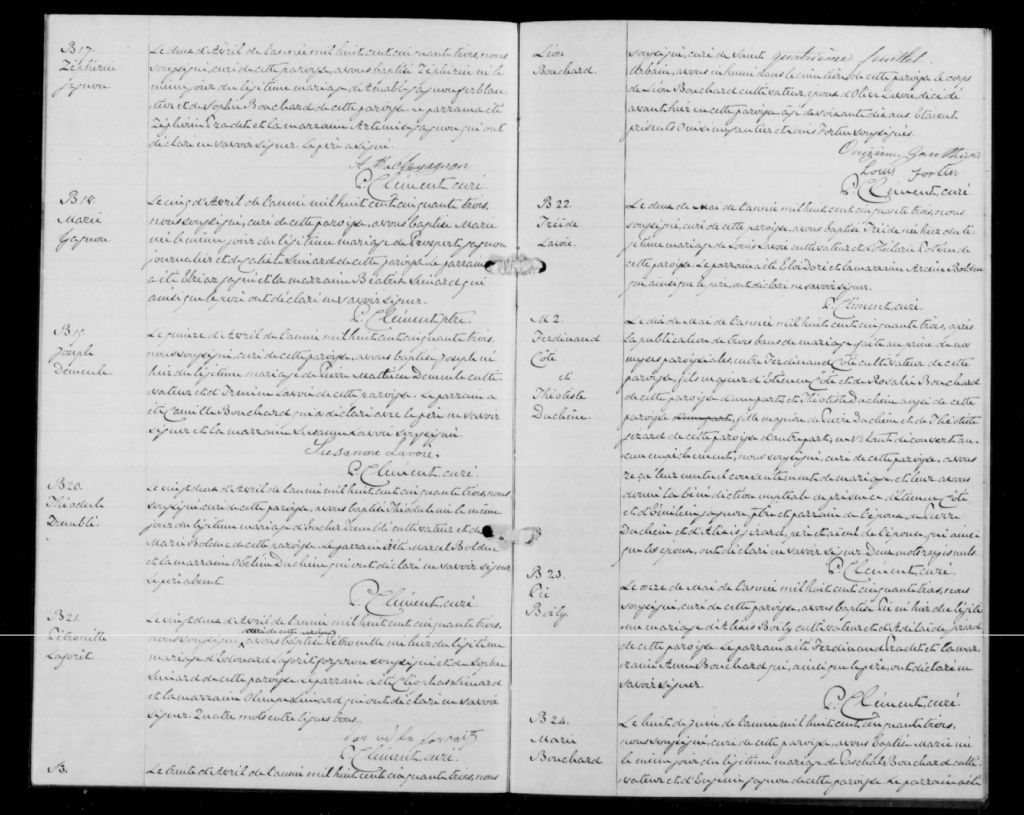 B 17.
Zéphirin
Gagnon
Le deux d'Avril de l'année mil huit cent cinquante trois, nous
soussigné, curé de cette paroisse, avons baptisé Zéphirin né le
même jour du légitime mariage d'Amable Gagnon ferblan-
tier et de Sophie Bouchard de cette paroisse. Le parrain a été
Zéphirin Pradet et la marraine Artémise Gagnon qui ont
déclaré ne savoir signer. Le père a signé.
Gagnon
P. Clément, curé.
B 18.
Marie
Gagnon.
Le cinq d'Avril de l'année mil huit cent cinquante trois,
nous soussigné, curé de cette paroisse, avons baptisé Marie
née le même jour du légitime mariage de Prospert Gagnon
journalier et de Simard de cette paroisse. Le parrain
a été et la marraine Simard qui
ainsi que le père ont déclaré ne savoir signer.
P. Clément, ptre.
B 19.
Joseph
Demeule.
Le quinze d'Avril de l'année mil huit cent cinquante trois.
nous soussigné, curé de cette paroisse, avons baptisé Joseph né
hier du légitime mariage de Pierre Mathieu Demeule culti-
vateur et d' Lavoie de cette paroisse. Le parrain a
été Camille Bouchard qui a déclaré avec le père ne savoir
signer et la marraine Susanne Lavoie soussignée.
Sussanne Lavoie.
P. Clément, curé.
B 20.
Théodule
Tremblé.
Le vingt deux d'Avril de l'année mil huit cent cinquante trois, nous
soussigné, curé de cette paroisse, avons baptisé Théodule né le même
jour du légitime mariage d'Eucher Tremblé cultivateur et de
Marie Bolduc de cette paroisse. Le parrain a été Marcel Bolduc
et la marraine Obéline Duchêne qui ont déclaré ne savoir signer
Le père absent.
P. Clément, curé.
B 21.
Pétronille
Laforêt
Le vingt deux d'Avril de l'année mil huit cent cinquante trois.
curé de cette paroisse
nous soussigné, avons baptisé Pétronille née hier du légitime
mariage d'Edouard Laforêt forgeron soussigné et de Sophie
Simard de cette paroisse. Le parrain a été Cléophas Simard
et la marraine Olimpe Simard qui ont déclaré ne savoir
signer. Quatre mots entre lignes bons.
P. Clément, curé.
B.
Le trente d'Avril de l'année mil huit cent cinquante trois, nous
Léon
Bouchard.
quatrième feuillet.
soussigné, curé de Saint
Urbain, avons inhumé dans le cimetière de cette paroisse le corps
de Léon Bouchard cultivateur, époux d' Lavoie, décédé
avant hier en cette paroisse âgé de soixante dix ans. étaient
présents Onézime Gautier et Louis Fortin soussignés.
Onézime Gauthier
Louis Fortin
P. Clément, curé.
B 22.
Lavoie.
Le deux de Mai de l'année mil huit cent cinquante trois, nous
soussigné, curé de cette paroisse, avons baptisé né hier du lé-
gitime mariage de Louis Lavoie cultivateur et d' de
cette paroisse. Le parrain a été Eloi Doré et la marraine Bolduc
qui, ainsi que le père, ont déclaré ne savoir signer.
P. Clément, curé.
M 2.
Ferdinand
Côté
et
Théotiste
Duchêne.
Le dix de Mai de l'année mil huit cent cinquante trois, après
la publication de trois bans de mariage faite au prône de nos
messes paroissiales, entre Ferdinand Côté cultivateur de cette
paroisse, fils majeur d'Etienne Côté et de Rosalie Bouchard
de cette paroisse d'une part, et Théotiste Duchêne aussi de cette
paroisse d'une part, fille majeure de Pierre Duchêne et de Théotiste
Gerard de cette paroisse d'autre part, ne s'étant découvert au-
cun empêchement, nous soussigné, curé de cette paroisse, avons
reçu leur mutuel consentement de mariage et leur avons
donné la bénédiction nuptiale en présence d'Etienne Côté
et d' Gagnon père et parrain de l'époux, de Pierre
Duchêne et d'Alexis Girard, père et aïeul de l'épouse, qui ainsi
que les époux, ont déclaré ne savoir signer. Deux mots rayés nuls.
P. Clément, curé.
B 23.
Pie
Boily
Le onze de Mai de l'année mil huit cent cinquante trois, nous
soussigné, curé de cette paroisse, avons baptisé Pie né hier du légiti-
me mariage d'Alexis Boily cultivateur et d'Adélaïde Girard
de cette paroisse. Le parrain a été Ferdinand Pradet et la mar-
raine Anne Bouchard qui, ainsi que le père, ont déclaré ne
savoir signer.
P. Clément, curé.
B 24.
Marie
Bouchard
Le huit de Juin de l'année mil huit cent cinquante trois,
nous soussigné, curé de cette paroisse, avons baptisé Marie née
le même jour du légitime mariage de Paschal Bouchard culti-
vateur et d' Gagnon de cette paroisse. Le parrain a été